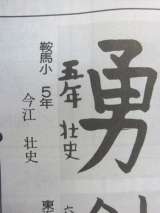 勇
五年 壮史
鞍馬小 5年
今江 壮史